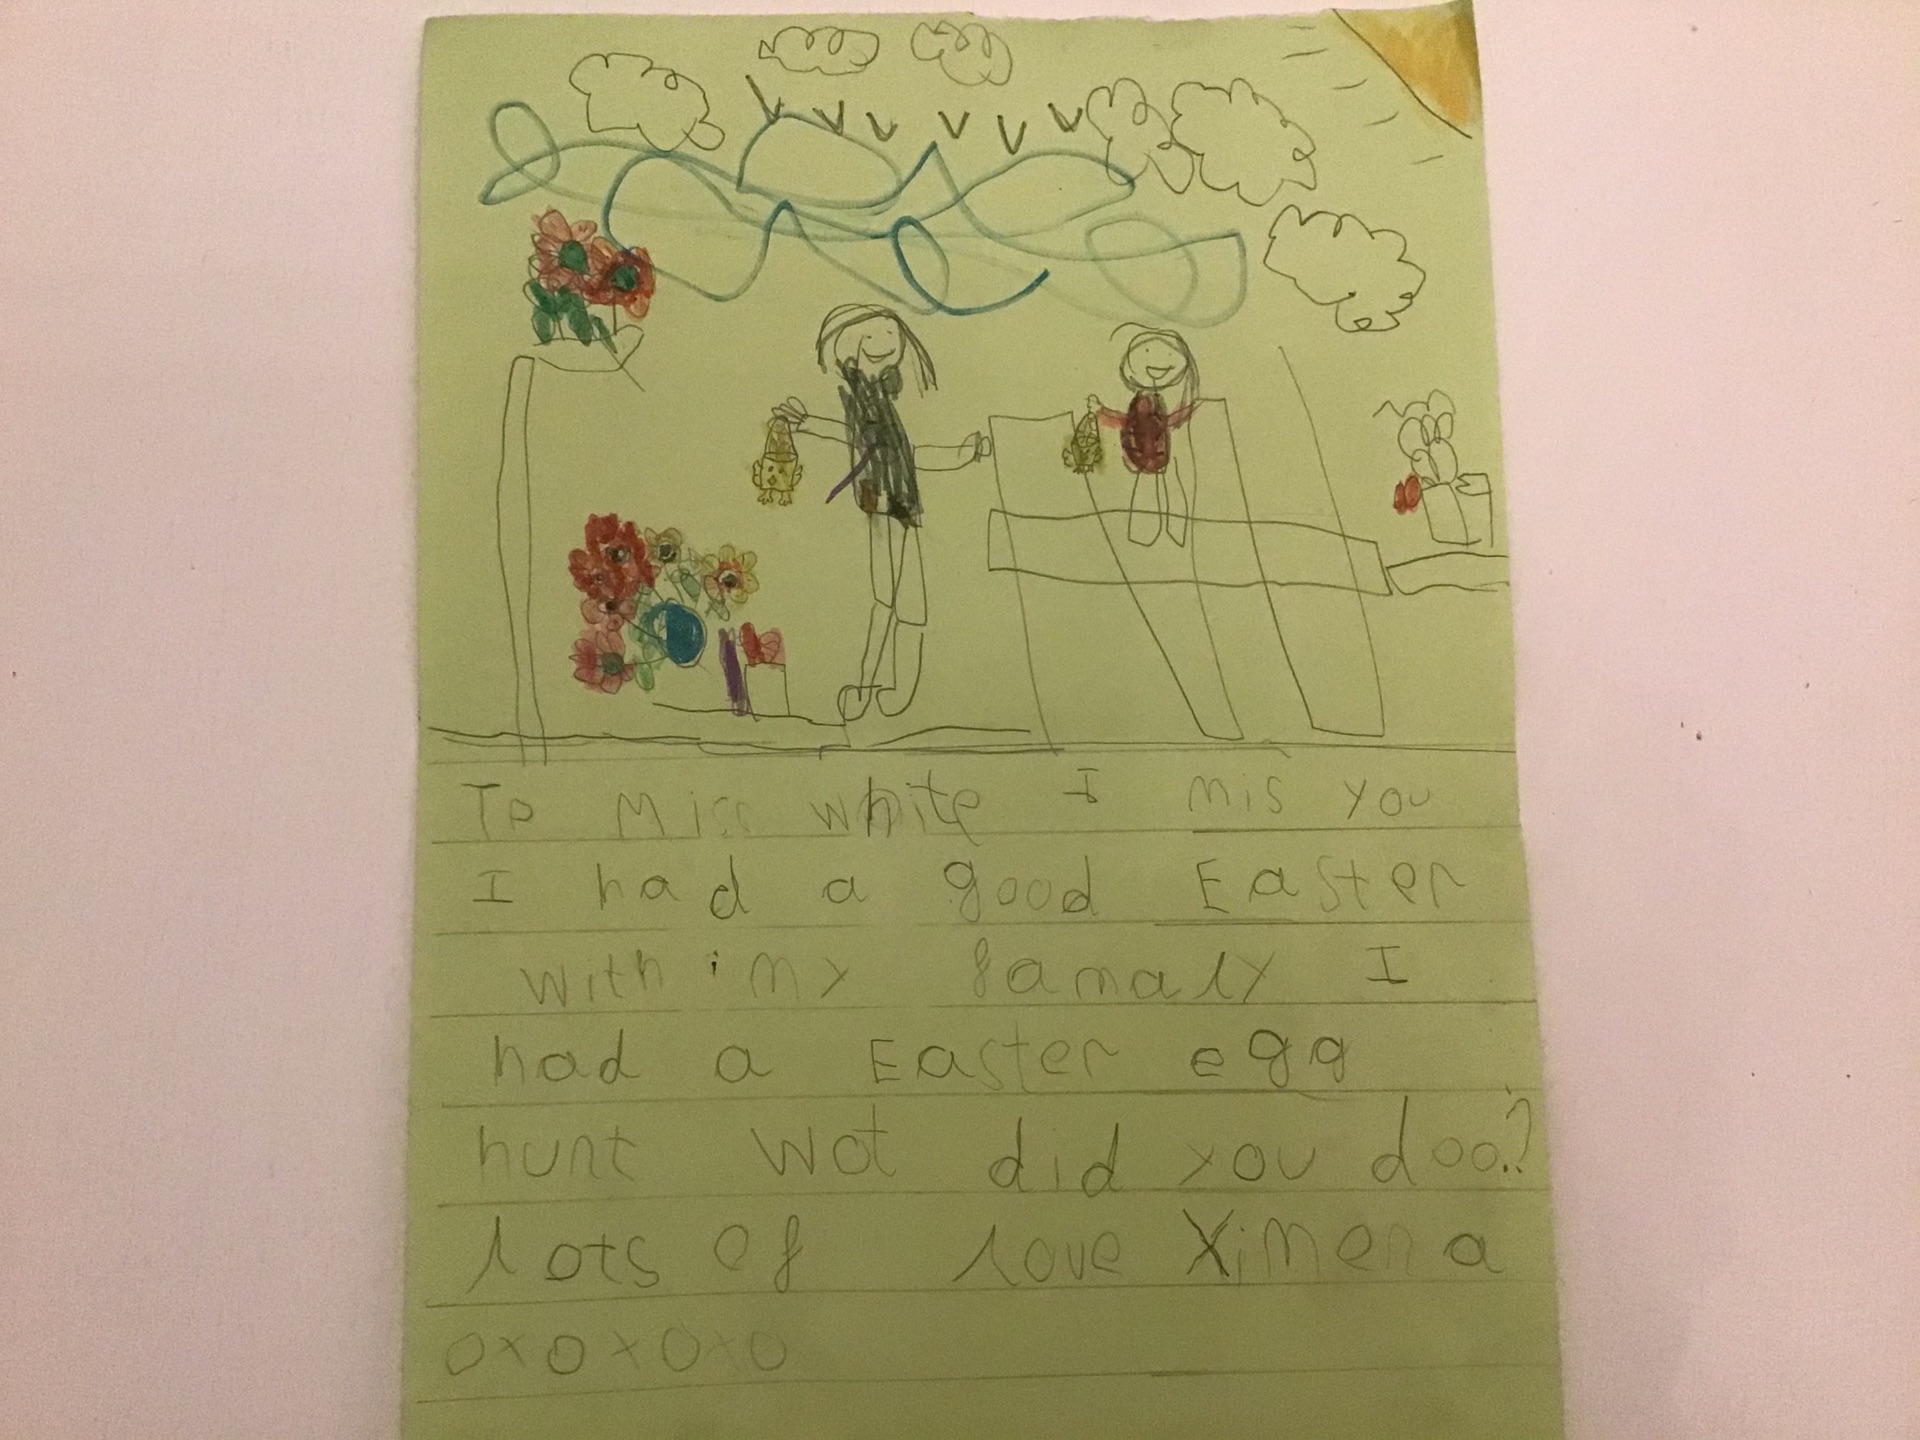 To Miss white I mis you
I had a good Easter
with my famaly I
had a Easter egg
hunt wot did you doo?
lots of love Ximena
oxoxoxo